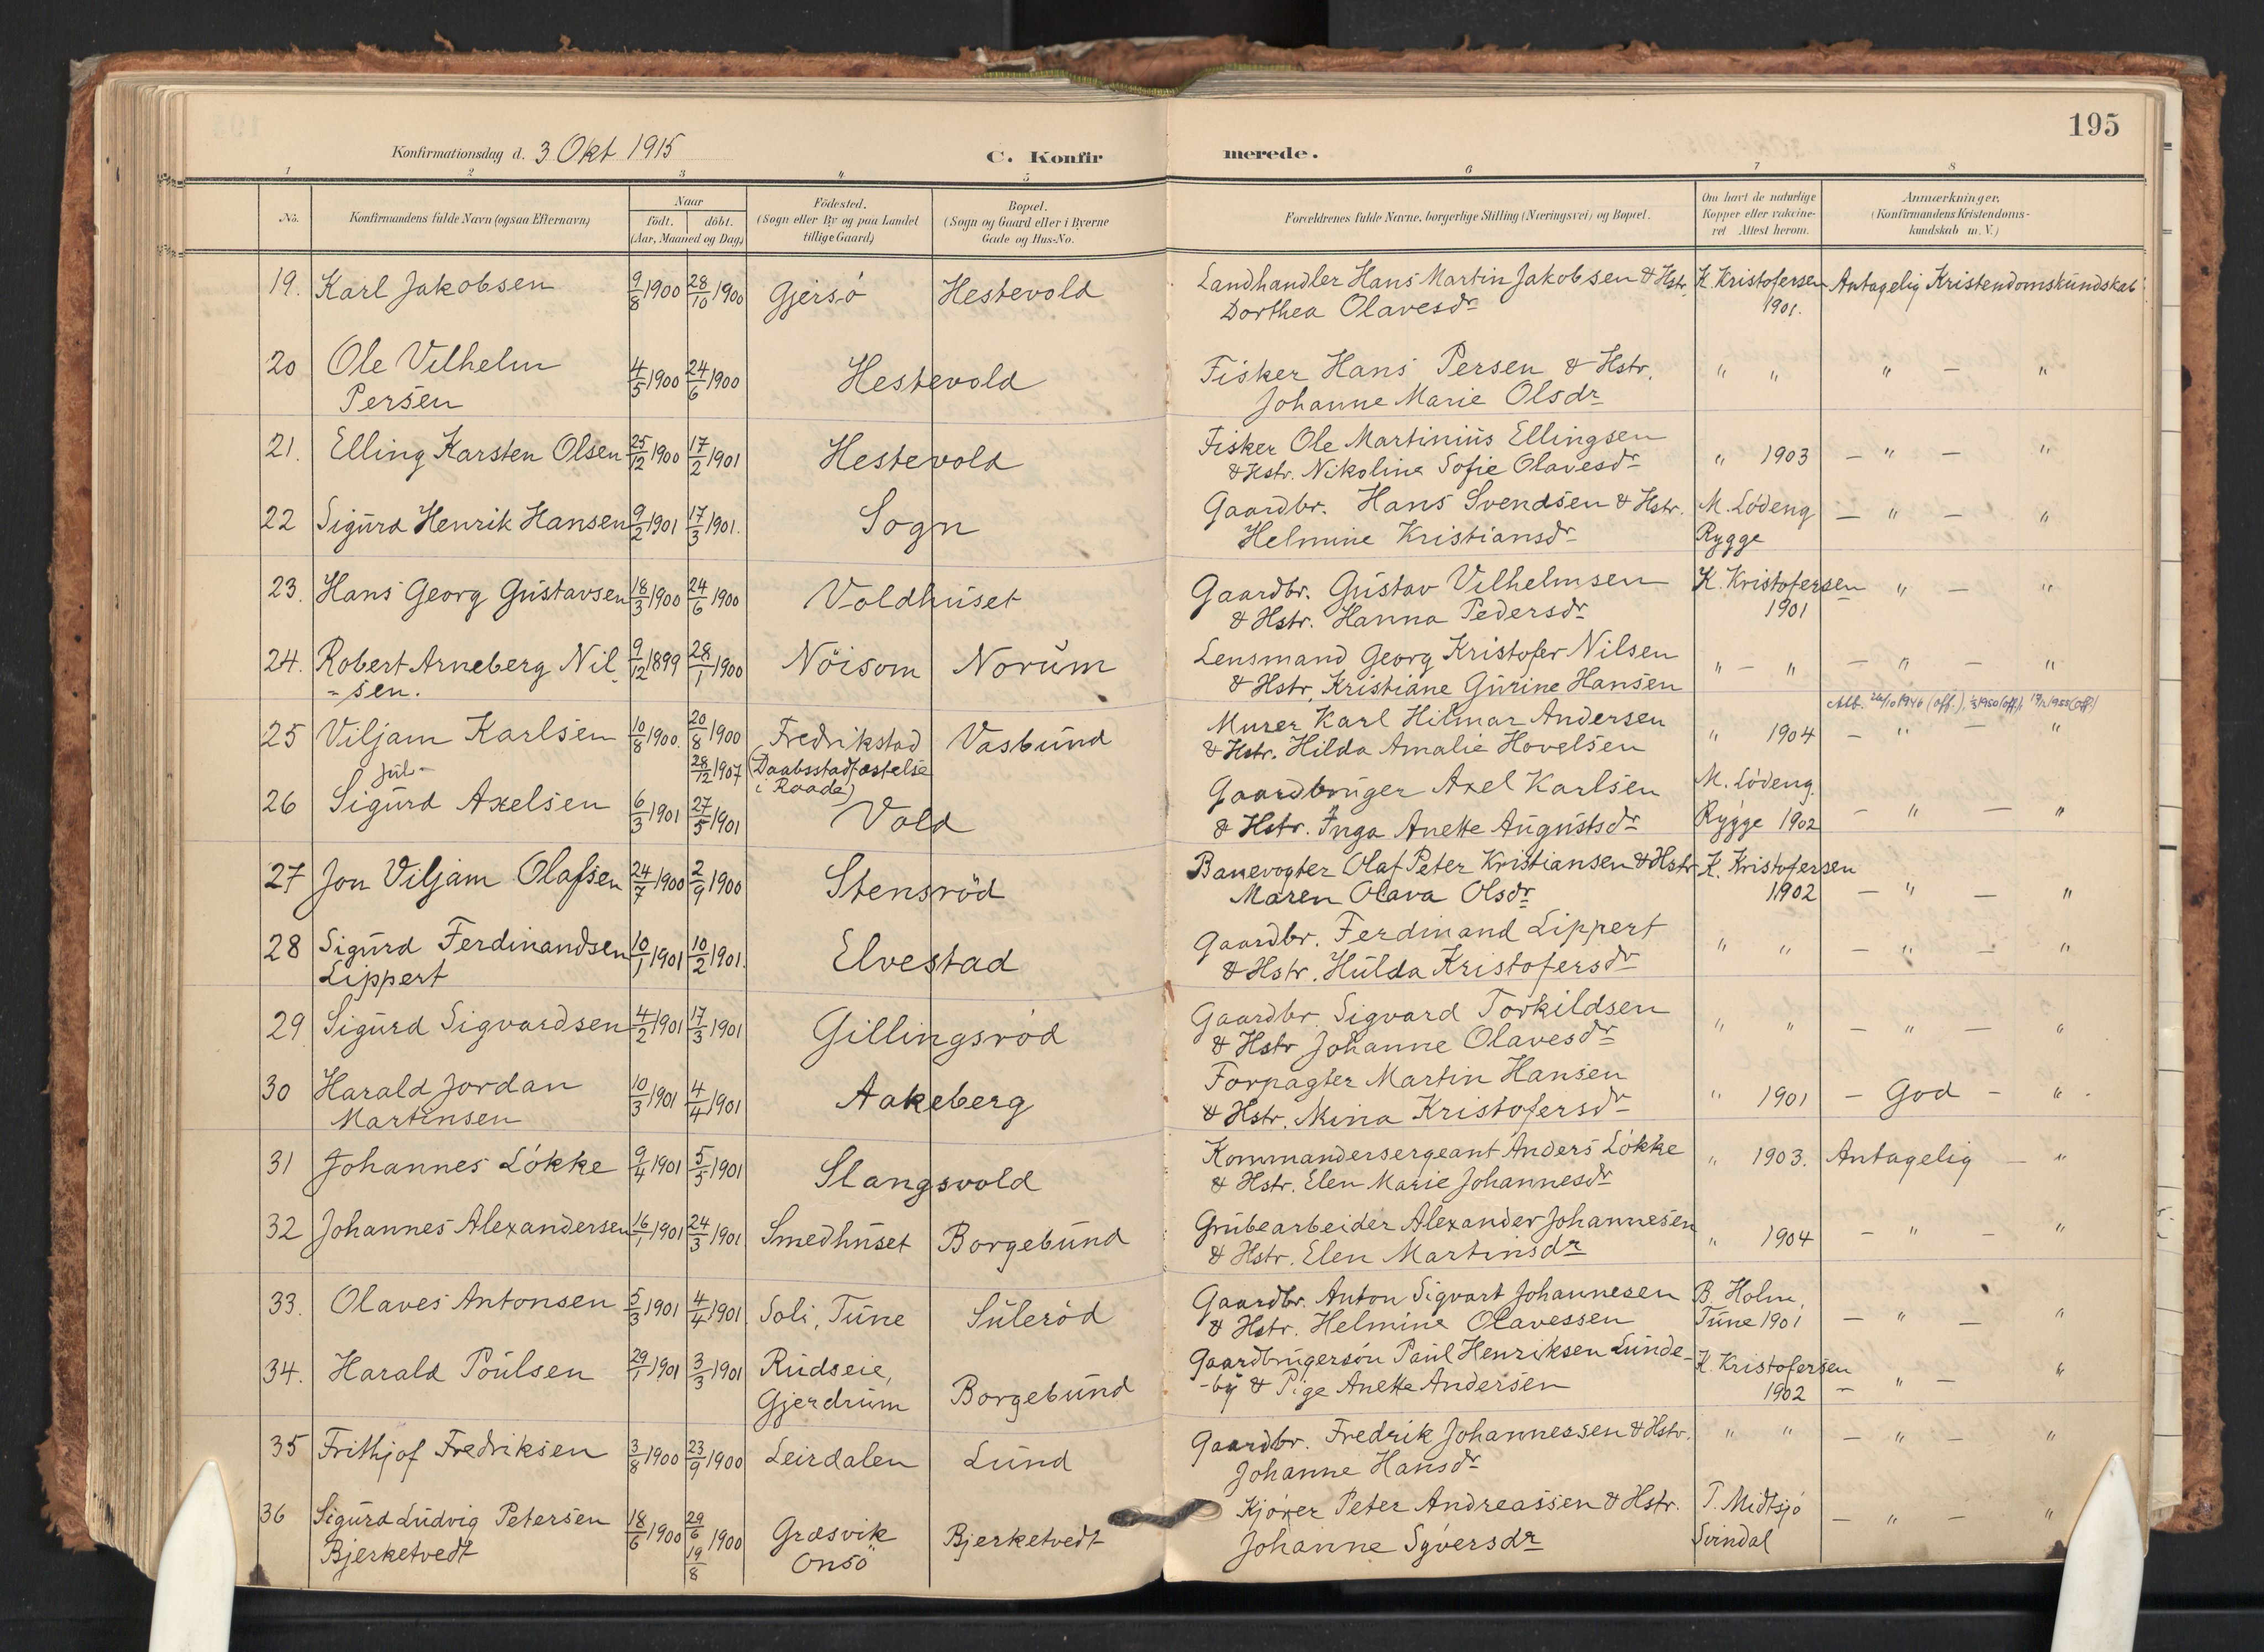 195
Konfirmationsdag d. 3 Okt 1915
C. Konfirmerede.
1 2 3 4 5 6 7 8
No. Konfirmandens fulde Navn (ogsaa Efternavn) Naar födt. döbt. (Aar, Maaned og Dag) Födested. (Sogn eller By og paa Landet tillige Gaard) Bopæl. (Sogn og Gaard eller i Byerne Gade og Hus-No. Forældrenes fulde Navne, borgerlige Stilling (Næringsvei) og Bopæl. Om havt de naturlige Kopper eller vakcineret Attest herom. Anmærkninger. (Konfirmandens Kristendomskundskab m. V.)
19. Karl Jakobsen 9/8 1900 28/10 1900 Gjersö Hestevold Landhandler Hans Martin Jakobsen & Hstr. K. Kristofersen Antagelig Kristendomskundskab
Dorthea Olavesdr 1901.
20 Ole Vilhelm 4/5 1900 24/6 1900 Hestevold Fisker Hans Persen & Hstr. " " " - "
Persen Johanne Marie Olsdr
21. Elling Karsten Olsen 25/12 1900 17/2 1901 Hestevold Fisker Ole Martinius Ellingsen " 1903 - " - "
& Hstr. Nikoline Sofie Olavesdr
22 Sigurd Henrik Hansen 9/2 1901 17/3 1901. Sogn Gaardbr. Hans Svendsen & Hstr. M. Lödeng - " - "
Helmine Kristiansdr Rygge
23. Hans Georg Gustavsen 18/3 1900 24/6 1900 Voldhuset Gaardbr. Gustav Vilhelmsen K. Kristofersen " - "
& Hstr. Hanna Pedersdr 1901
24. Robert Arneberg Nil 9/12 1899 28/1 1900 Nöisom Norum Lensmand Georg Kristofer Nilsen " - " - " - "
-sen. & Hstr. Kristiane Gurine Hansen
Atb. 26/10 1946 (off.), 1950 (off.), 1955 (off.)
25 Viljam Karlsen 10/8 1900. 20/8 1900 Fredrikstad Vasbund Murer Karl Hilmar Andersen " 1904 - " - "
28/12 1907 (Daabsstadfæstelse & Hstr. Hilda Amalie Hovelsen
i Raade)
Jul-
26 Sigurd Axelsen 6/3 1901 27/5 1901 Vold Gaardbruger Axel Karlsen M. Lödeng. - " - "
& Hstr. Inga Anette Augustsdr Rygge 1902
27 Jon Viljam Olafsen 24/7 1900 2/9 1900 Stensröd Banevogter Olaf Peter Kristiansen & Hstr K. Kristofersen
Maren Olava Olsdr 1902 - " - "
28 Sigurd Ferdinandsen 10/1 1901 10/2 1901. Elvestad Gaardbr. Ferdinand Lippert " " - " - "
Lippert & Hstr. Hulda Kristofersdr
29 Sigurd Sigvardsen 4/2 1901 17/3 1901 Gillingsröd Gaardbr. Sigvard Torkildsen " " - " - "
& Hstr Johanne Olavesdr
30 Harald Jordan 10/3 1901 4/4 1901 Aakeberg Forpagter Martin Hansen " 1901 - God - " -
Martinsen & Hstr. Mina Kristofersdr
31 Johannes Lökke 9/4 1901 5/5 1901 Slangsvold Kommandersergeant Anders Lökke " 1903. Antagelig - "
& Hstr. Elen Marie Johannesdr
32 Johannes Alexandersen 16/1 1901 24/3 1901 Smedhuset Borgebund Grubearbeider Alexander Johannesen " 1904 - " - "
& Hstr. Elen Martinsdr
33. Olaves Antonsen 5/3 1901 4/4 1901 Soli, Tune Suleröd Gaardbr. Anton Sigvart Johannesen B. Holm,
& Hstr. Helmine Olavessen Tune 1901 - " - "
34. Harald Poulsen 29/1 1901 3/3 1901 Rudseie, Borgebund Gaardbrugersön Paul Henriksen Lunde- K. Kristofersen
Gjerdrum -by & Pige Anette Andersen 1902 - " - "
35 Frithjof Fredriksen 3/8 1900 23/9 1900 Leirdalen Lund Gaardbr. Fredrik Johannessen & Hstr. " " - " - "
Johanne Hansdr
36 Sigurd Ludvig Petersen 18/6 1900 29/6 19/8 1900 Græsvik Bjerketvedt Kjörer Peter Andreassen & Hstr. T. Midtsjö - " - "
Bjerketvedt Onsö Johanne Syversdr Svindal